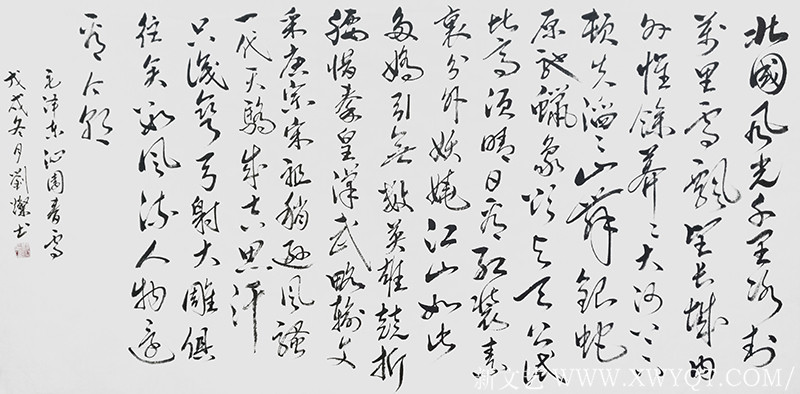 北國風光千里冰封
萬里雪飄望長城內
外惟餘莽〻大河上下
頓失滔〻山舞銀蛇
原馳蠟象欲与天公試
比高須晴日看紅裝素
裹分外妖嬈江山如此
多嬌引無數英雄競折
腰惜秦皇漢武略輸文
采唐宗宋祖稍遜風騷
一代天驕成吉思汗
只識彎弓射大雕俱
往矣數風流人物還
看今朝
毛澤東沁園春雪
戊戌冬月劉燦書
新文艺 WWW.XWYQT.COM/